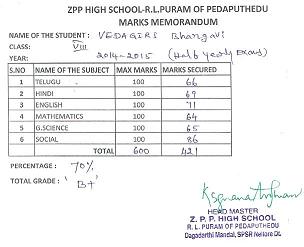 ZPP HIGH SCHOOL-R.L.PURAM OF PEDAPUTHEDU
MARKS MEMORANDUM
NAME OF THE STUDENT: VEDAGIRI Bhargavi
CLASS: VIII
YEAR: 2014-2015 (Half yearly Exams)
S.NO NAME OF THE SUBJECT MAX MARKS MARKS SECURED
1 TELUGU 100 66
2 HINDI 100 69
3 ENGLISH 100 71
4 MATHEMATICS 100 64
5 G.SCIENCE 100 65
6 SOCIAL 100 86
TOTAL 600 421
PERCENTAGE : 70%
TOTAL GRADE : 'B+'
HEAD MASTER
Z. P. P. HIGH SCHOOL
R. L. PURAM OF PEDAPUTHEDU
Dagadarthi Mandal, SPSR Nellore Dt.